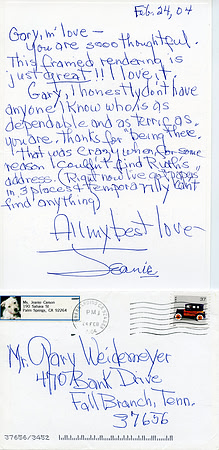 Feb. 24, 04
Gary, m' love—
you are sooo thoughtful.
This framed rendering is
just great!! I love it.
Gary, I honestly don't have
anyone I know who is as
dependable and as terrific as
you are. Thanks for "being there."
That was crazy when for some
reason I couldn't find Ruth's
address. (Right now I've got papes
in 3 places & temporarily can't
find anything)
All my best love—
Jeanie
Ms. Jeanie Carson
Palm Springs, CA 92264
PM
FEB
37
Mr. Gary Weidemeyer
470 Bank Drive
Fall Branch, Tenn.
37656
37656/3452